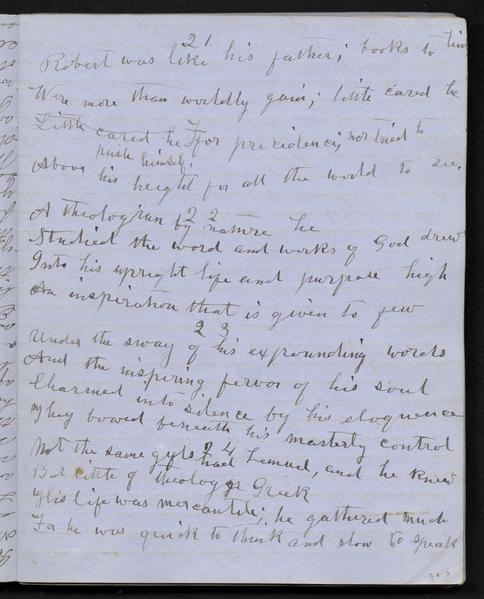 21
Robert was like his father; books to him
Were more than worldly gain; little cared he
Little cared he for precidency, nor tried to
push himself
Above his height for all the world to see.
22
A theologian by nature he
Studied the word and works of God drew
Into his upright life and purpose high
An inspiration that is given to few
23
Under the sway of his expounding words
And the inspiring fervor of his soul
Charmed into silence by his eloquence
They bowed beneath his masterly control
24
Not the same gifts had Lemuel, and he knew
But little of theology or Greek
His life was mercantile; he gathered much
For he was quick to think and slow to speak